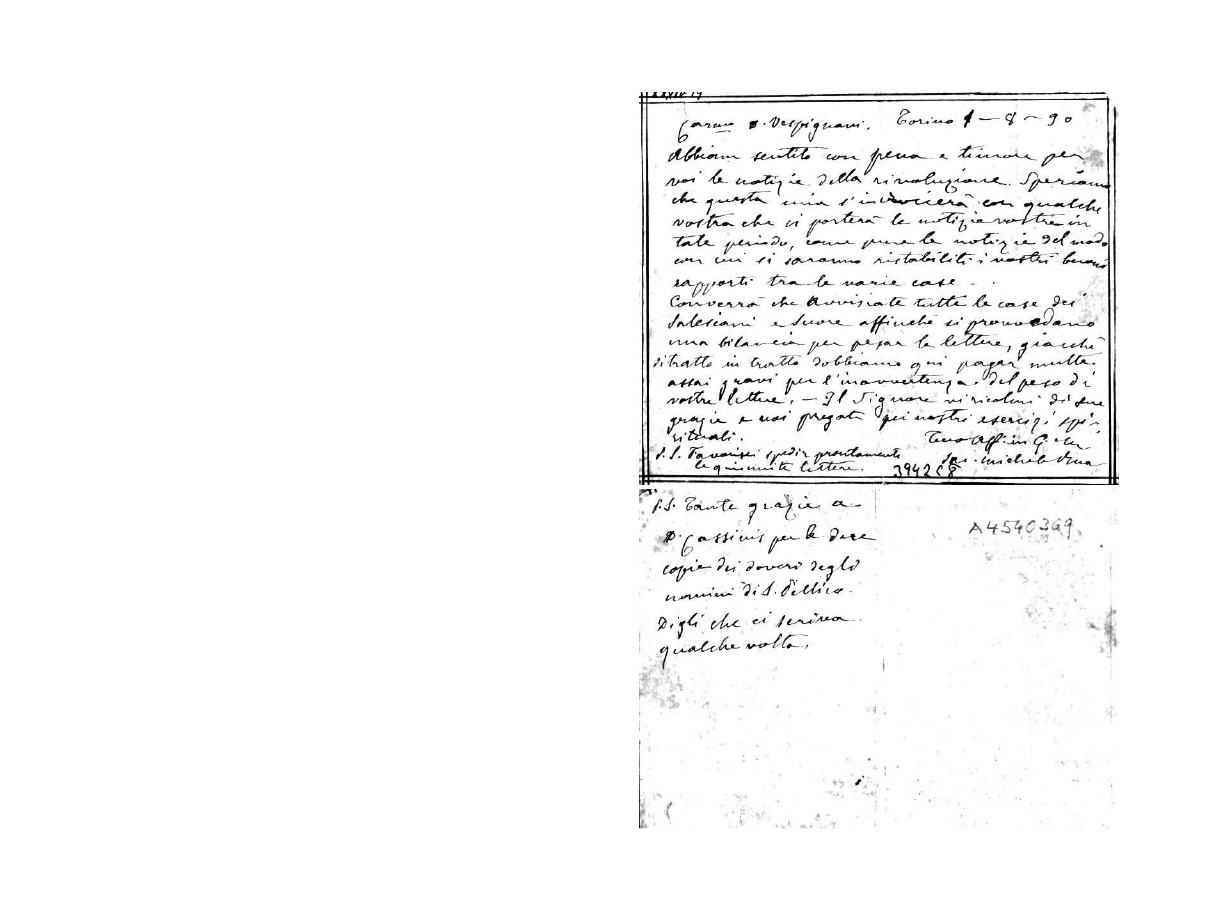 Car.mo D. Vespignani. Torino 1 - 8 - 90
Abbiam sentito con pena e timore per
voi le notizie della rivoluzione. Speriamo
che questa mia s'incrocierà con qualche
vostra che ci porterà le notizie vostre in
tale periodo, come pure le notizie del modo
con cui si saranno ristabiliti i vostri buoni
rapporti tra le varie case.
Converrà che avvisiate tutte le case dei
Salesiani e Suore affinchè si provvedano
una bilancia per pesar le lettere, giacchè
di tratto in tratto dobbiamo qui pagar multe
assai gravi per l'inavvertenza del peso di
vostre lettere. - Il Signore vi ricolmi di sue
grazie e voi pregate pei nostri esercizi spi-
rituali. Tuo Aff. in G. e M.
P.S. Favorisci spedir prontamente Sac. Michele Rua
le quiunite lettere. 3942C8
P.S. Tante grazie a
D. Cassinis per le due
copie dei doveri degli
uomini di S. Pellico.
Digli che ci scriva
qualche volta.
A4540369